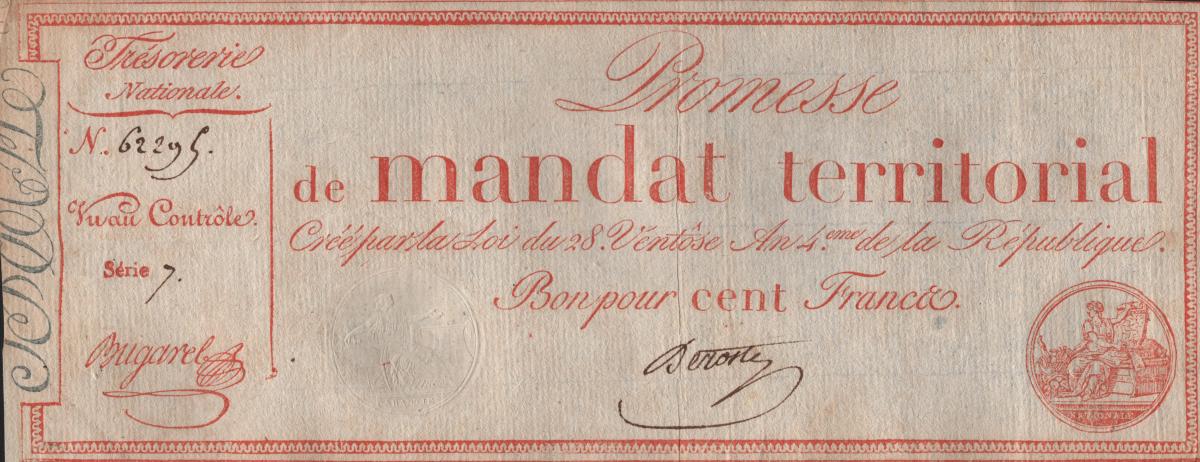 Trésorerie
Nationale.
N. 62295.
Vu au Contrôle.
Série 7.
Bugarel
Promesse
de mandat territorial
Créé par la Loi du 28. Ventôse An 4.eme de la République.
Bon pour cent Francs.
NATIONALE